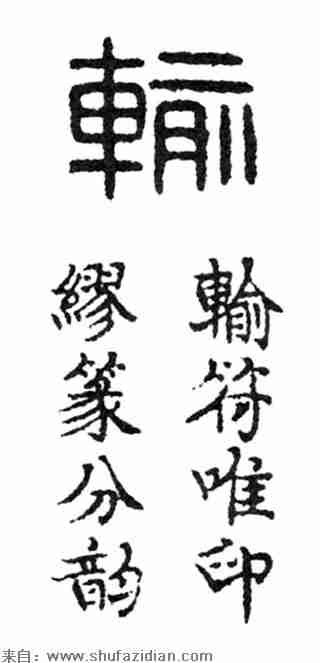 輸
輸符唯印
繆篆分韵
来自：www.shufazidian.com